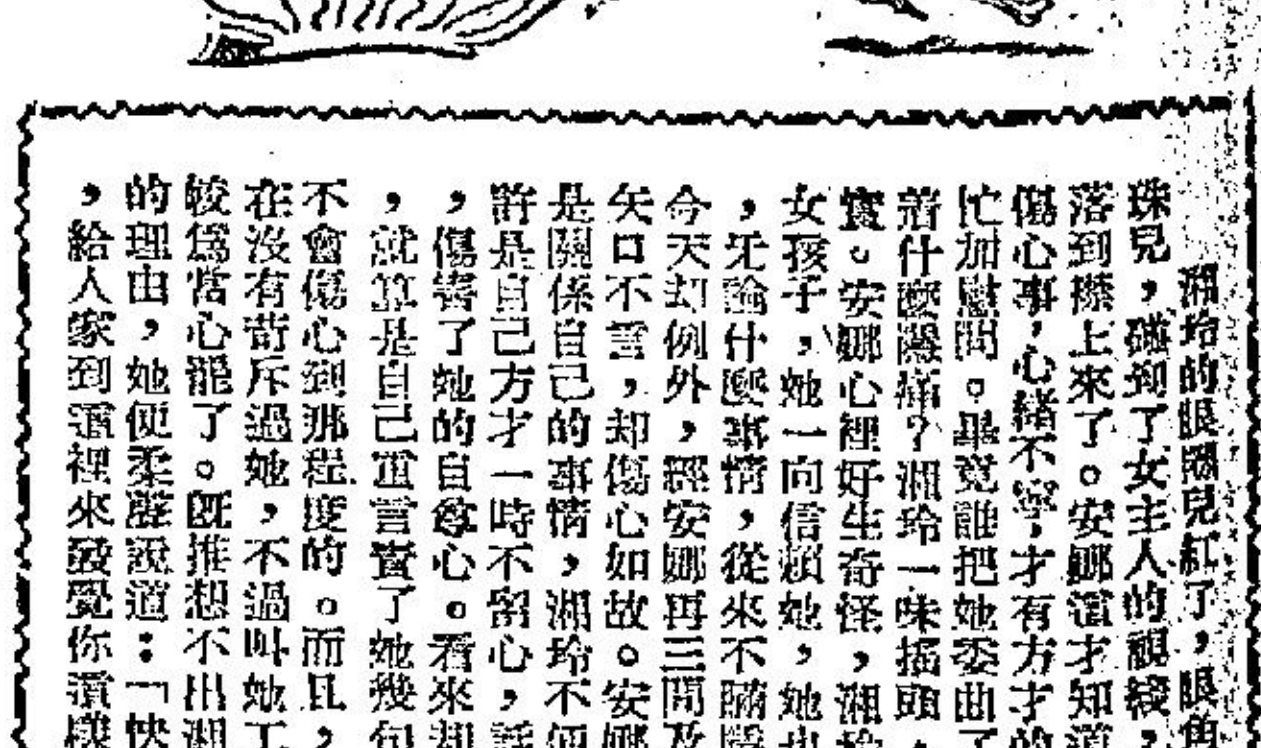 湘玲的眼圈兒紅了，眼角
珠兒，碰到了女主人的視綫，
落到襟上來了。安娜這才知道
傷心事，心緒不寧，才有方才的
忙加慰問。畢竟誰把她委曲了
着什麼隱痛？湘玲一味搖頭，
實。安娜心裡好生奇怪，湘玲
女孩子，她一向信賴她，她也
，无論什麼事情，從來不瞞
今天却例外，經安娜再三問及
矢口不言，却傷心如故。安娜
是關係自己的事情，湘玲不便
許是自己方才一時不留心，話
，傷害了她的自尊心。看來却
，就算是自己重言責了她幾句
不會傷心到那程度的。而且，
在沒有苛斥過她，不過叫她工
較爲當心罷了。既推想不出湘
的理由，她便柔聲説道：「快
，給人家到這裡來發覺你這樣